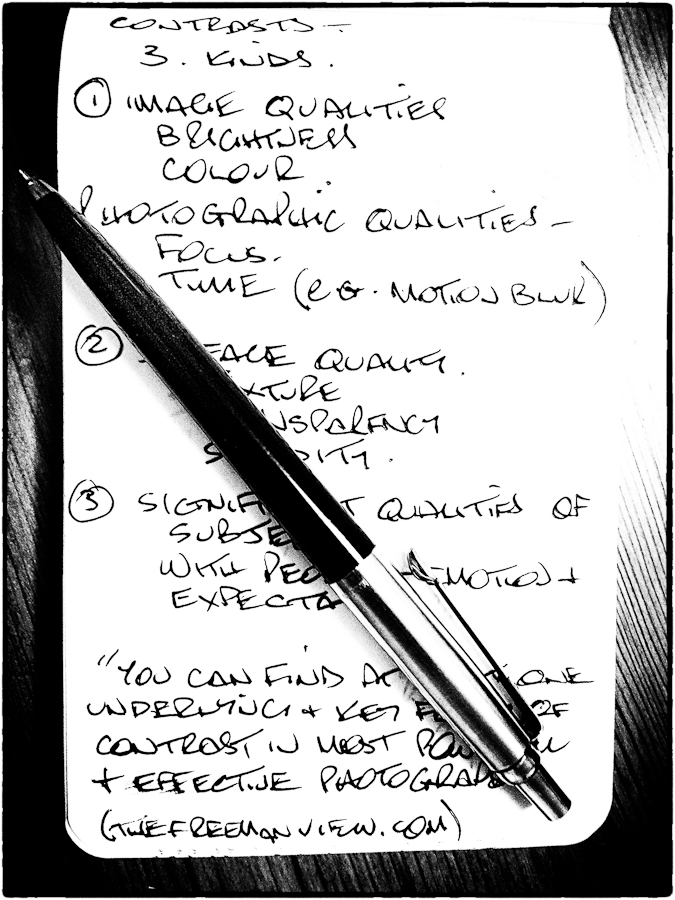 CONTRASTS -
3. KINDS.
① IMAGE QUALITIES
BRIGHTNESS
COLOUR.
PHOTOGRAPHIC QUALITIES -
FOCUS.
TIME (eg. MOTION BLUR)
② FACE QUALITY.
XTURE
NSPARENCY
S DITY.
③ SIGNIFI T QUALITIES OF
SUBJE
WITH PEO MOTION +
EXPECTA
"YOU CAN FIND AT ONE
UNDERLYING + KEY F OF
CONTRAST IN MOST POW
+ EFFECTIVE PHOTOGRAP
(THEFREEMANVIEW.COM)